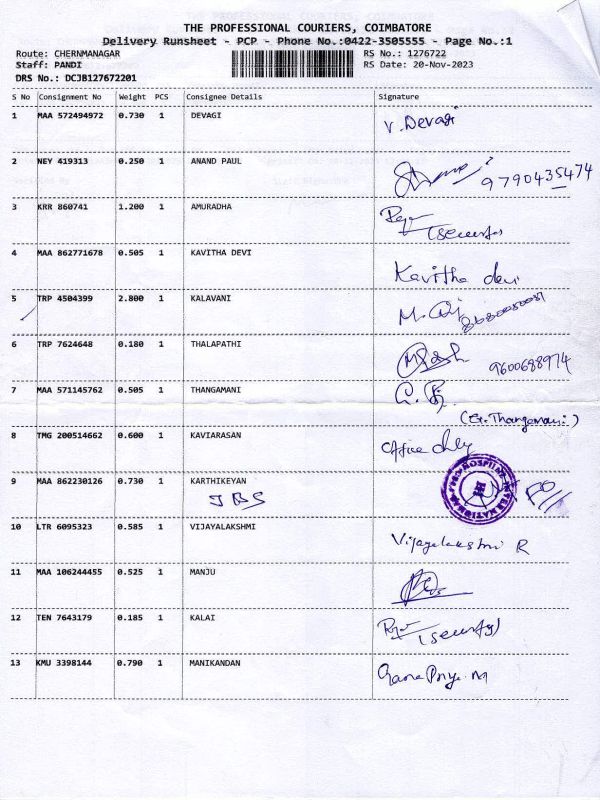 THE PROFESSIONAL COURIERS, COIMBATORE
Delivery Runsheet - PCP - Phone No.:0422-3505555 - Page No.:1
Route: CHERNMANAGAR RS No.: 1276722
Staff: PANDI RS Date: 20-Nov-2023
DRS No.: DCJB127672201
S No Consignment No Weight PCS Consignee Details Signature
1 MAA 572494972 0.730 1 DEVAGI V. Devagi
2 NEY 419313 0.250 1 ANAND PAUL 9790435474
3 KRR 860741 1.200 1 AMURADHA (security)
4 MAA 862771678 0.505 1 KAVITHA DEVI Kavitha devi
5 TRP 4504399 2.800 1 KALAVANI
6 TRP 7624648 0.180 1 THALAPATHI 9600688974
7 MAA 571145762 0.505 1 THANGAMANI
(G. Thangamani)
8 TMG 200514662 0.600 1 KAVIARASAN
9 MAA 862230126 0.730 1 KARTHIKEYAN
JBS
10 LTR 6095323 0.585 1 VIJAYALAKSHMI Vijayalakshmi R
11 MAA 106244455 0.525 1 MANJU
12 TEN 7643179 0.185 1 KALAI (security)
13 KMU 3398144 0.790 1 MANIKANDAN